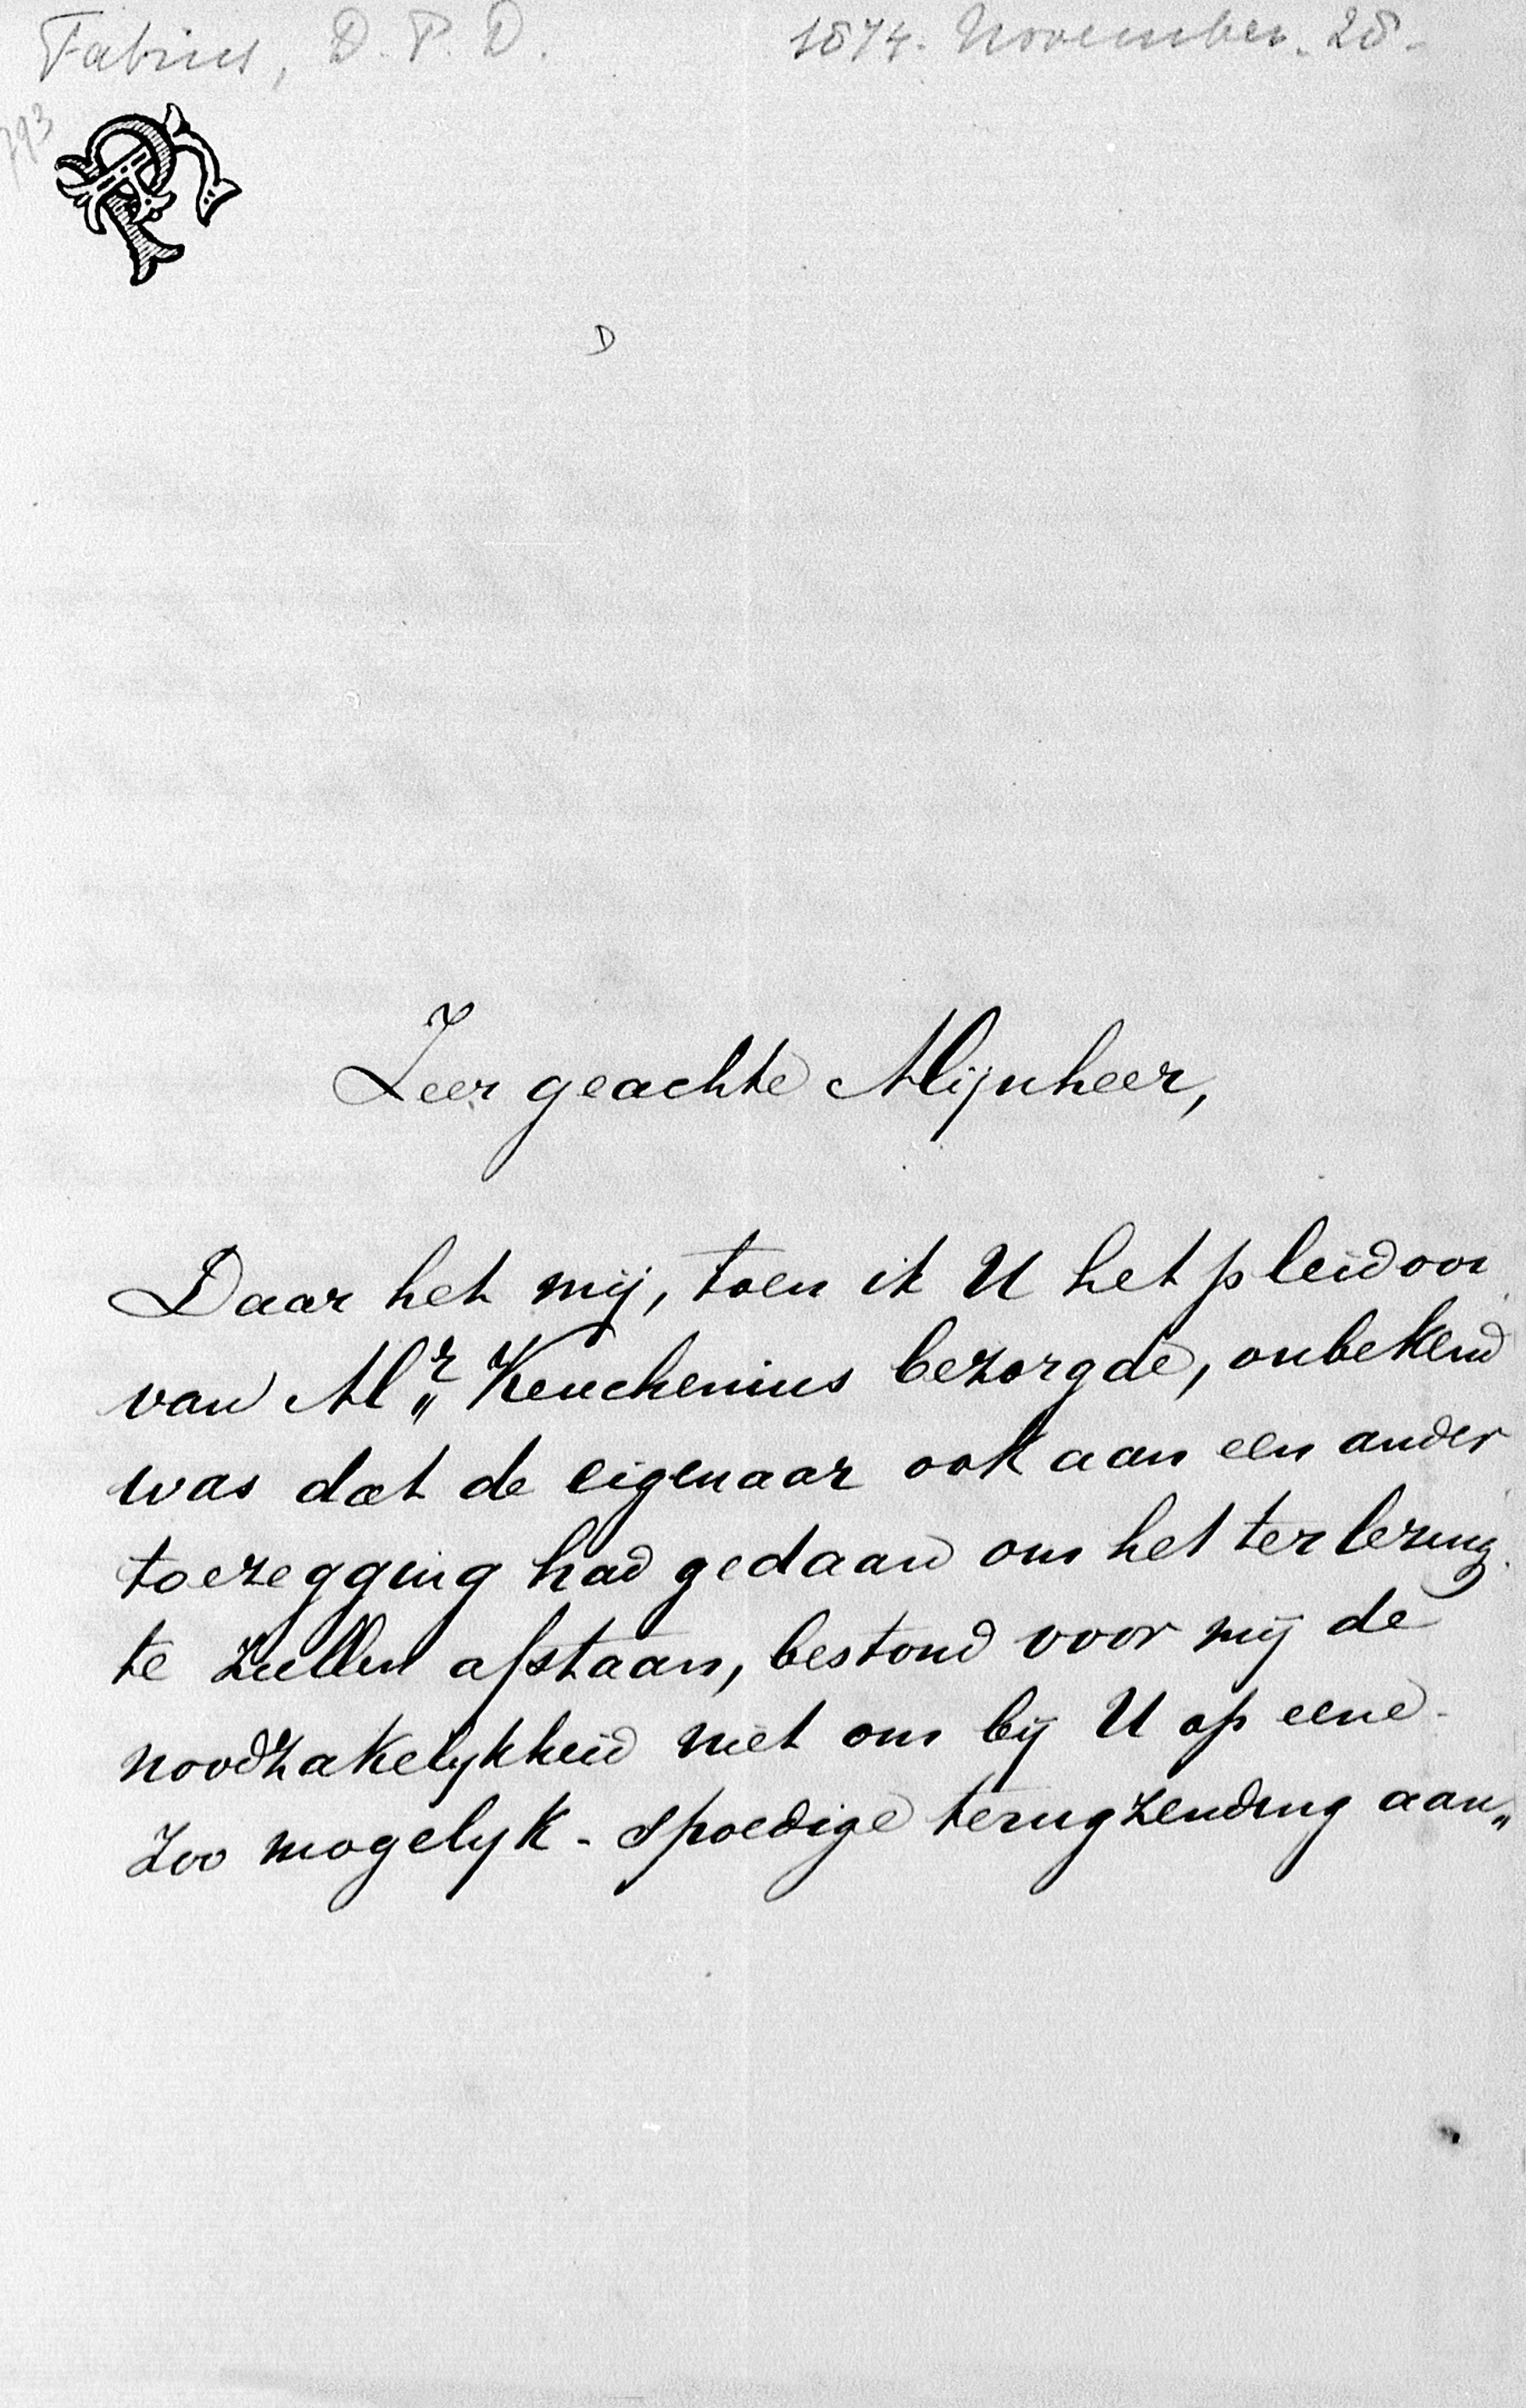 Fabius, D. P. D.    1874. November. 28.
793
D
Zeer geachte Mijnheer,
Daar het mij, toen ik U het pleidooi
van Mr„ Keuchenius bezorgde, onbekend
was dat de eigenaar ook aan een ander
toezegging had gedaan om het ter lezing
te zullen afstaan, bestond voor mij de
noodzakelijkheid niet om bij U op eene
zoo mogelijk - spoedige terugzending aan„